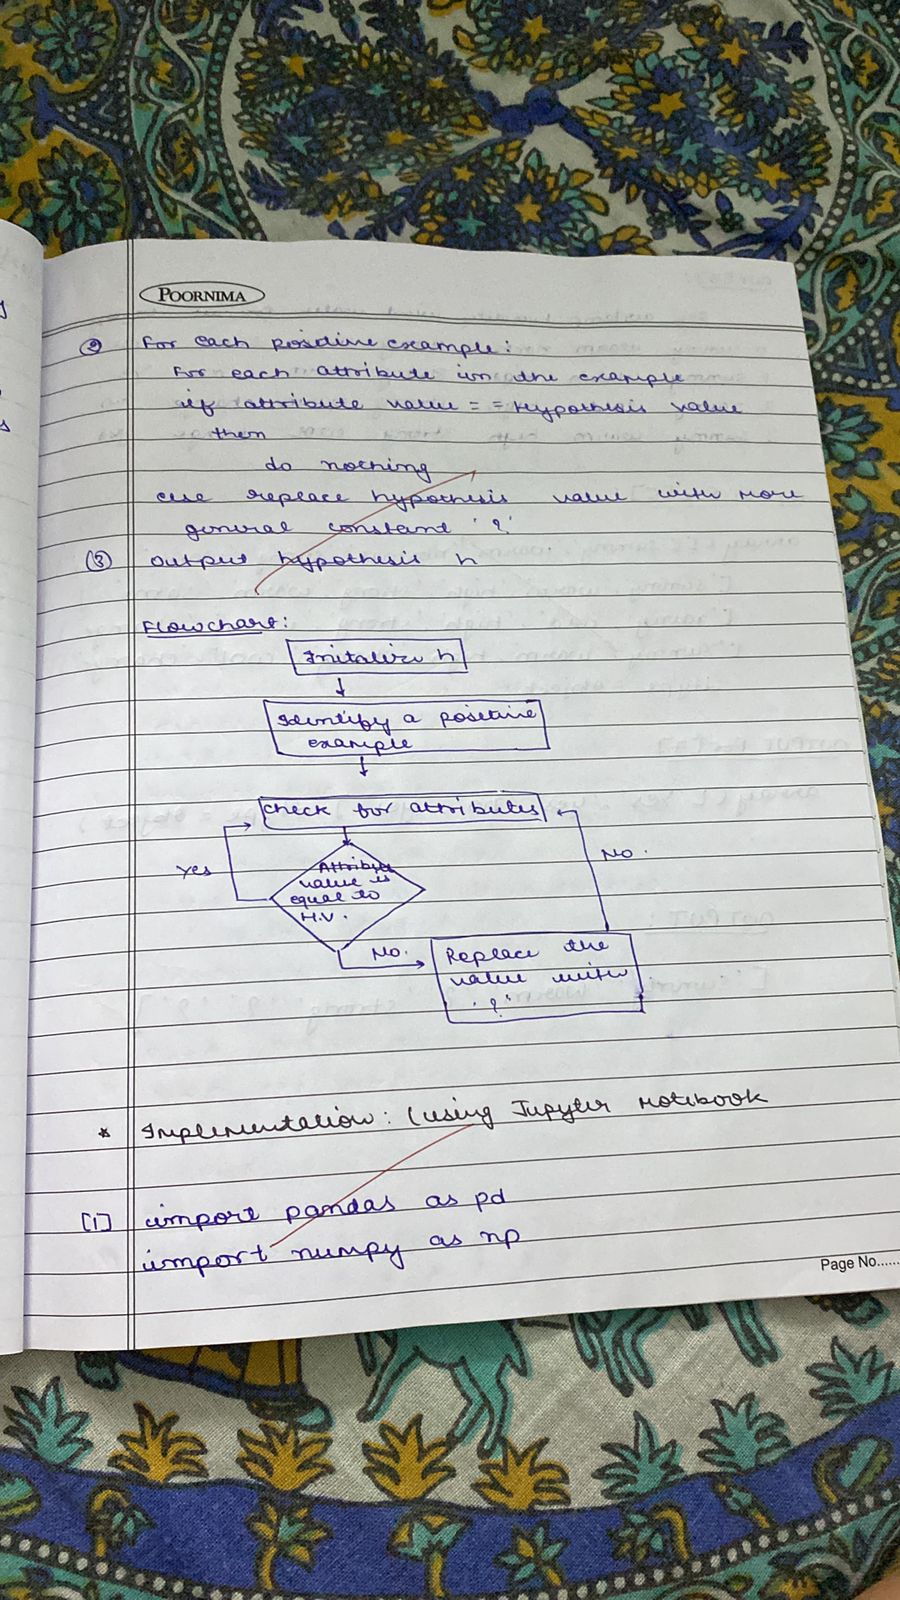 POORNIMA
② For each positive example:
For each attribute in the example
if attribute value == Hypothesis value
then
do nothing
else replace hypothesis value with more
general constant '?'
③ output hypothesis h
Flowchart:
Initalize h
Identify a positive
example
check for attributes
Yes
No.
Attribute
value is
equal to
H.V.
No.
Replace the
value with
'?'
* Implementation: (using Jupyter Notebook
[1] import pandas as pd
import numpy as np
Page No......